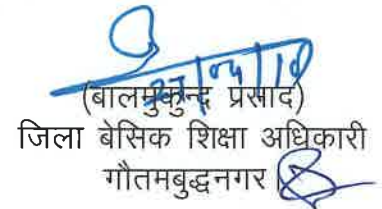 (बालमुकुन्द प्रसाद)
जिला बेसिक शिक्षा अधिकारी
गौतमबुद्धनगर।